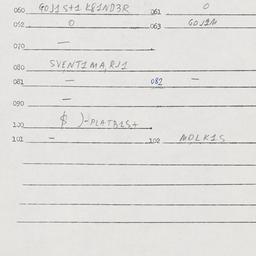 060 GOJ1S+1 K81ND3R 061 0
062 0 063 GOJ1M
070 —
080 SVENT1MARJ1
081 — 082 —
090 —
100 $ )-PLATB1S+
101 – 102 MOLK1S